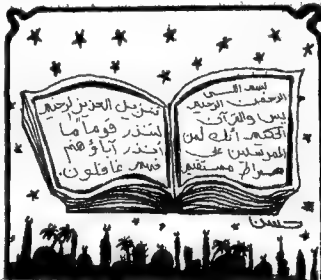 بسم الله
الرحمن الرحيم
يس والقرآن
الحكيم انك لمن
المرسلين على
صراط مستقيم
تنزيل العزيز الرحيم
لتنذر قوماً مّا
أنذر آباؤهم
فهم غافلون.
حسن